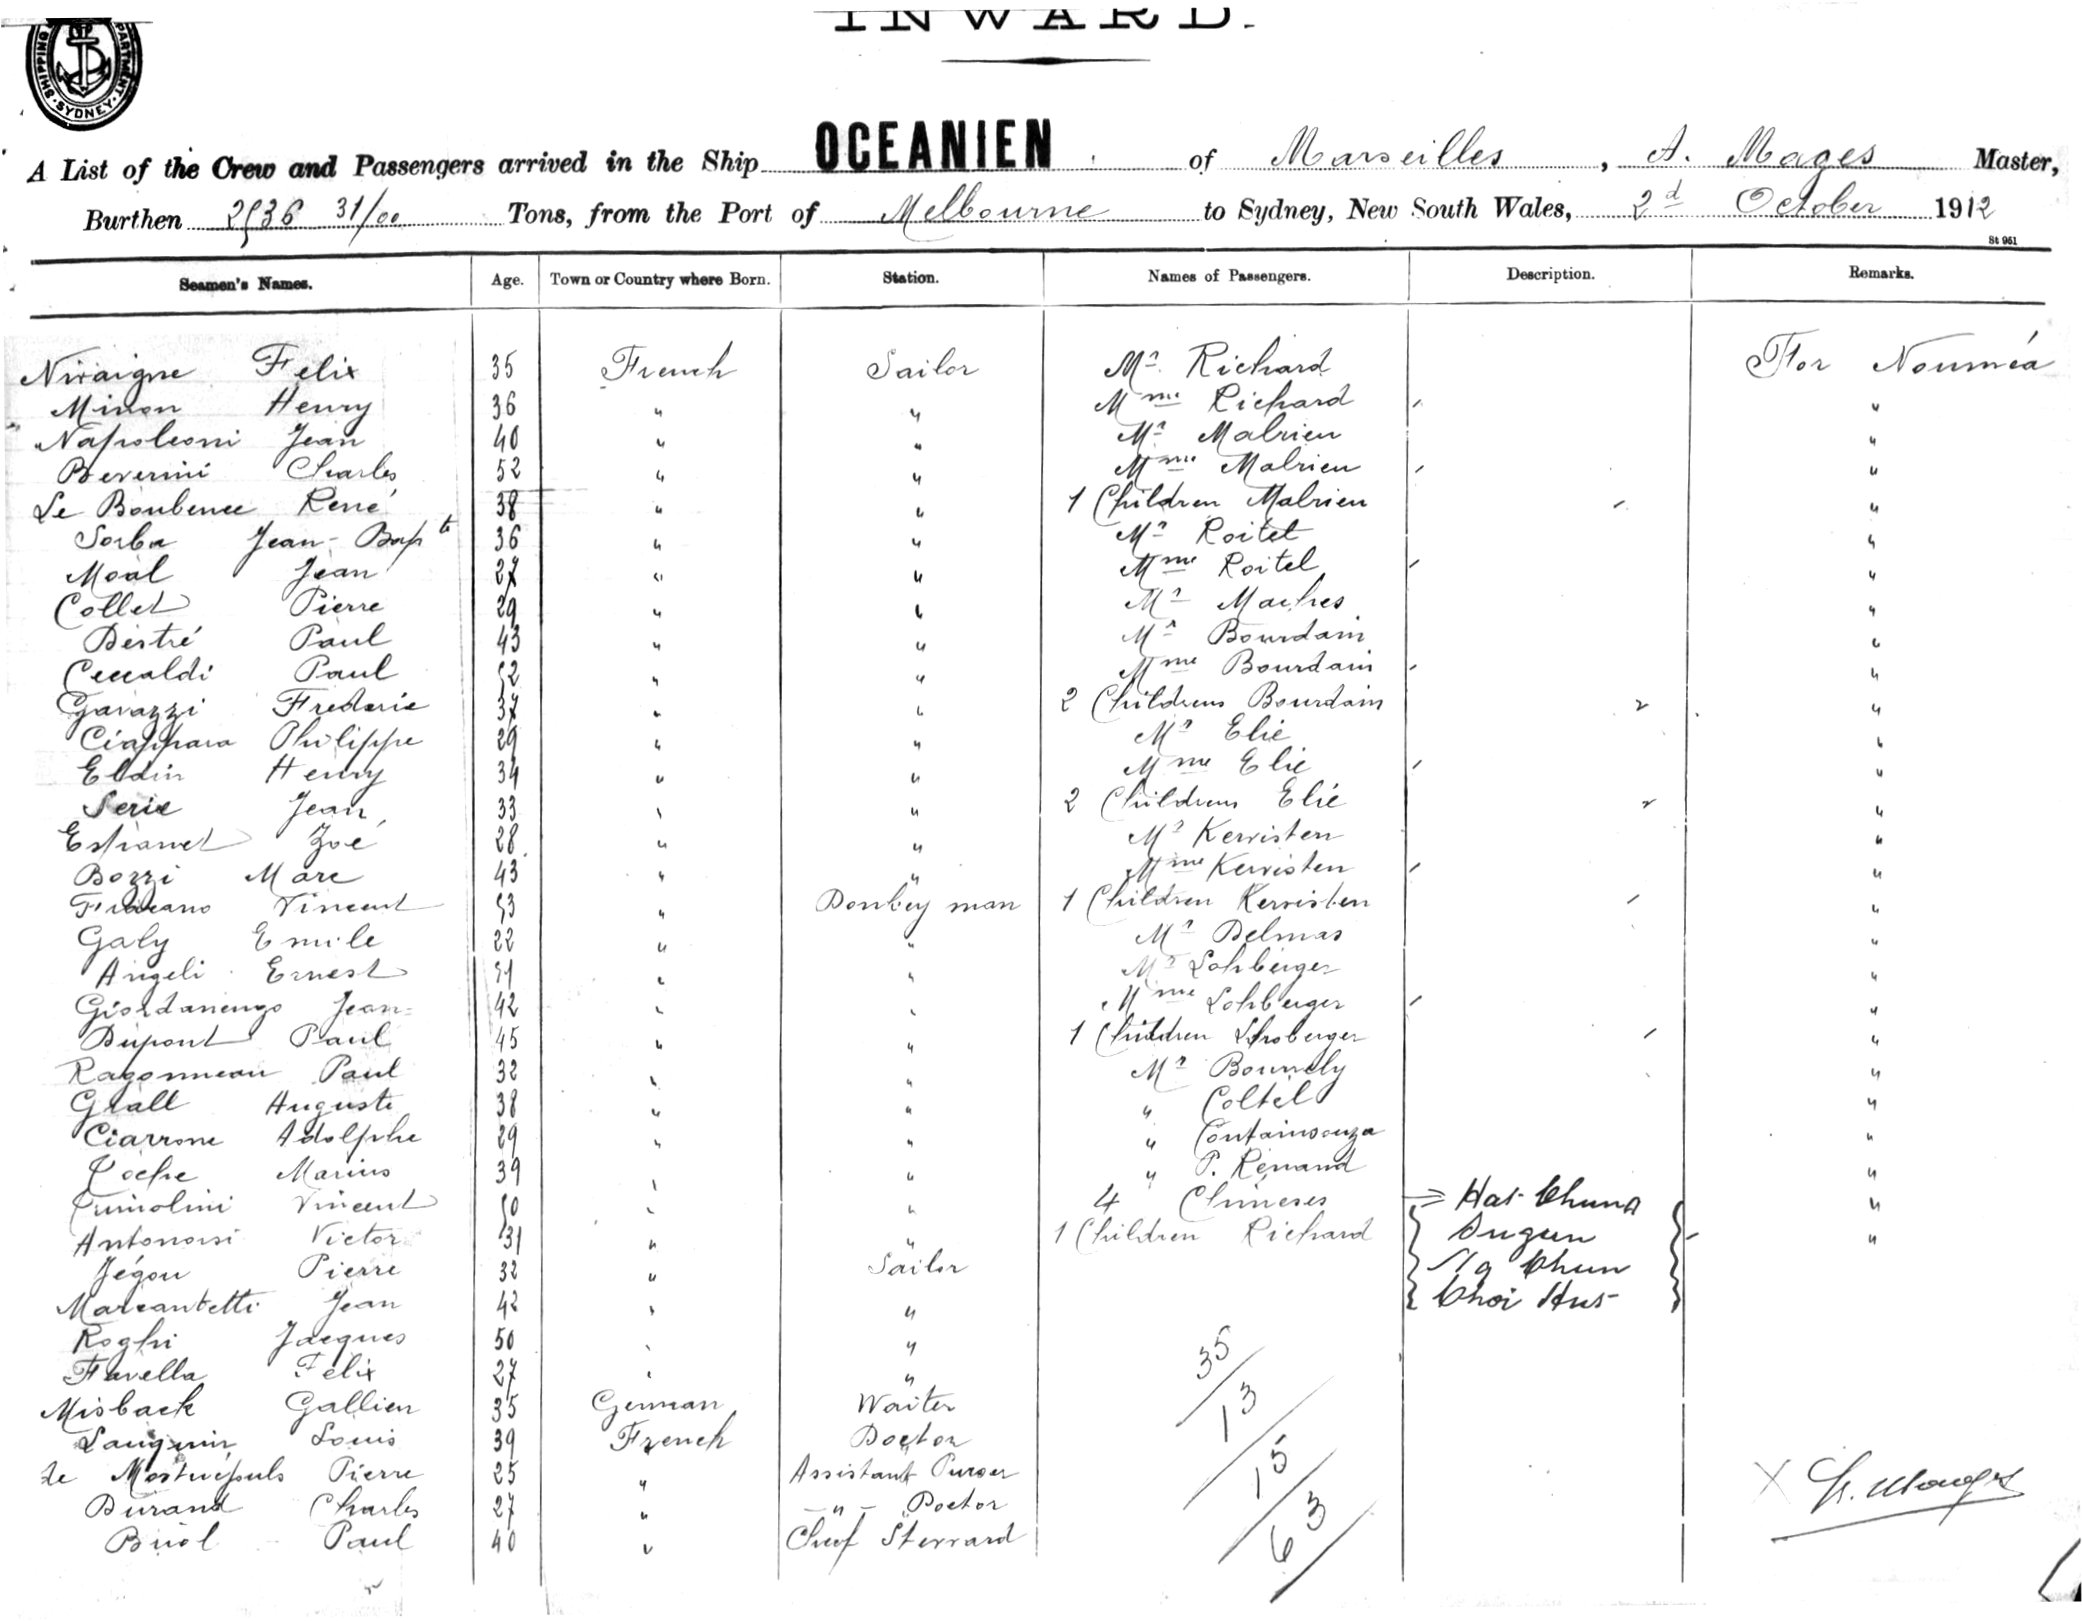 INWARD.
SHIPPING DEPARTMENT SYDNEY
A List of the Crew and Passengers arrived in the Ship OCEANIEN of Marseilles, A. Mages Master,
Burthen 31/00 Tons, from the Port of Melbourne to Sydney, New South Wales, 2d October 1912
St 961
Seamen's Names. Age. Town or Country where Born. Station. Names of Passengers. Description. Remarks.
Felix 35 French Sailor Mr Richard For Nouméa
Minon Henry 36 " " Mme Richard "
Napoleoni Jean 40 " " Mr Malrieu "
Beverini Charles 52 " " Mme Malrieu "
Le René 38 " " 1 Children Malrieu "
Sorba Jean-Bapte 36 " " Mr Roitel "
Moal Jean 27 " " Mme Roitel "
Collet Pierre 29 " " Mr "
Paul 43 " " Mr Bourdain "
Ceccaldi Paul 52 " " Mme Bourdain "
Gavazzi Frederic 37 " " 2 Childrens Bourdain "
Ciappara Philippe 29 " " Mr Elie "
Eldin Henry 34 " " Mme Elie "
Serie Jean 33 " " 2 Childrens Elie "
Zoé 28 " " Mr Kerristen "
Bozzi Marc 43 " " Mme Kerristen "
Vincent 53 " Donkey man 1 Children Kerristen "
Galy Emile 22 " " Mr Delmas "
Angeli Ernest 51 " " Mr Lohberger "
Giordanengo Jean 42 " " Mme Lohberger "
Dupont Paul 45 " " 1 Children "
Ragonneau Paul 32 " " Mr "
Grall Auguste 38 " " " Coltel "
Ciarrone Adolphe 29 " " " "
Marius 39 " " " P. Renand "
Vincent 50 " " 4 Chineses = Hat Chung "
Victor 31 " " 1 Children Richard "
Jégou Pierre 32 " Sailor Chun
Marcantetti Jean 42 " " Choi
Roghi Jacques 50 " "
Favella Felix 27 " " 35
Misback Gallien 35 German Waiter 13
Louis 39 French Doctor
Pierre 25 " Assistant Purser 15
Durand Charles 27 " " Doctor 63
Paul 40 " Chief Sterrard